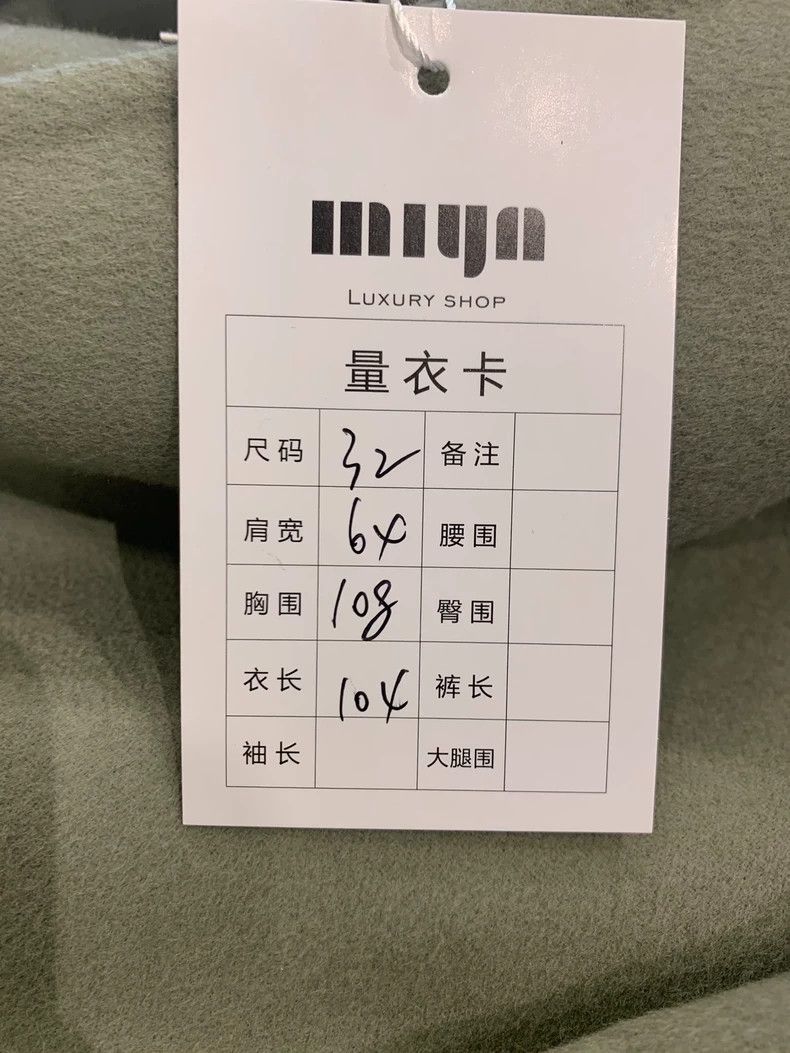 miyn
LUXURY SHOP
量衣卡
尺码 32 备注
肩宽 64 腰围
胸围 108 臀围
衣长 104 裤长
袖长 大腿围